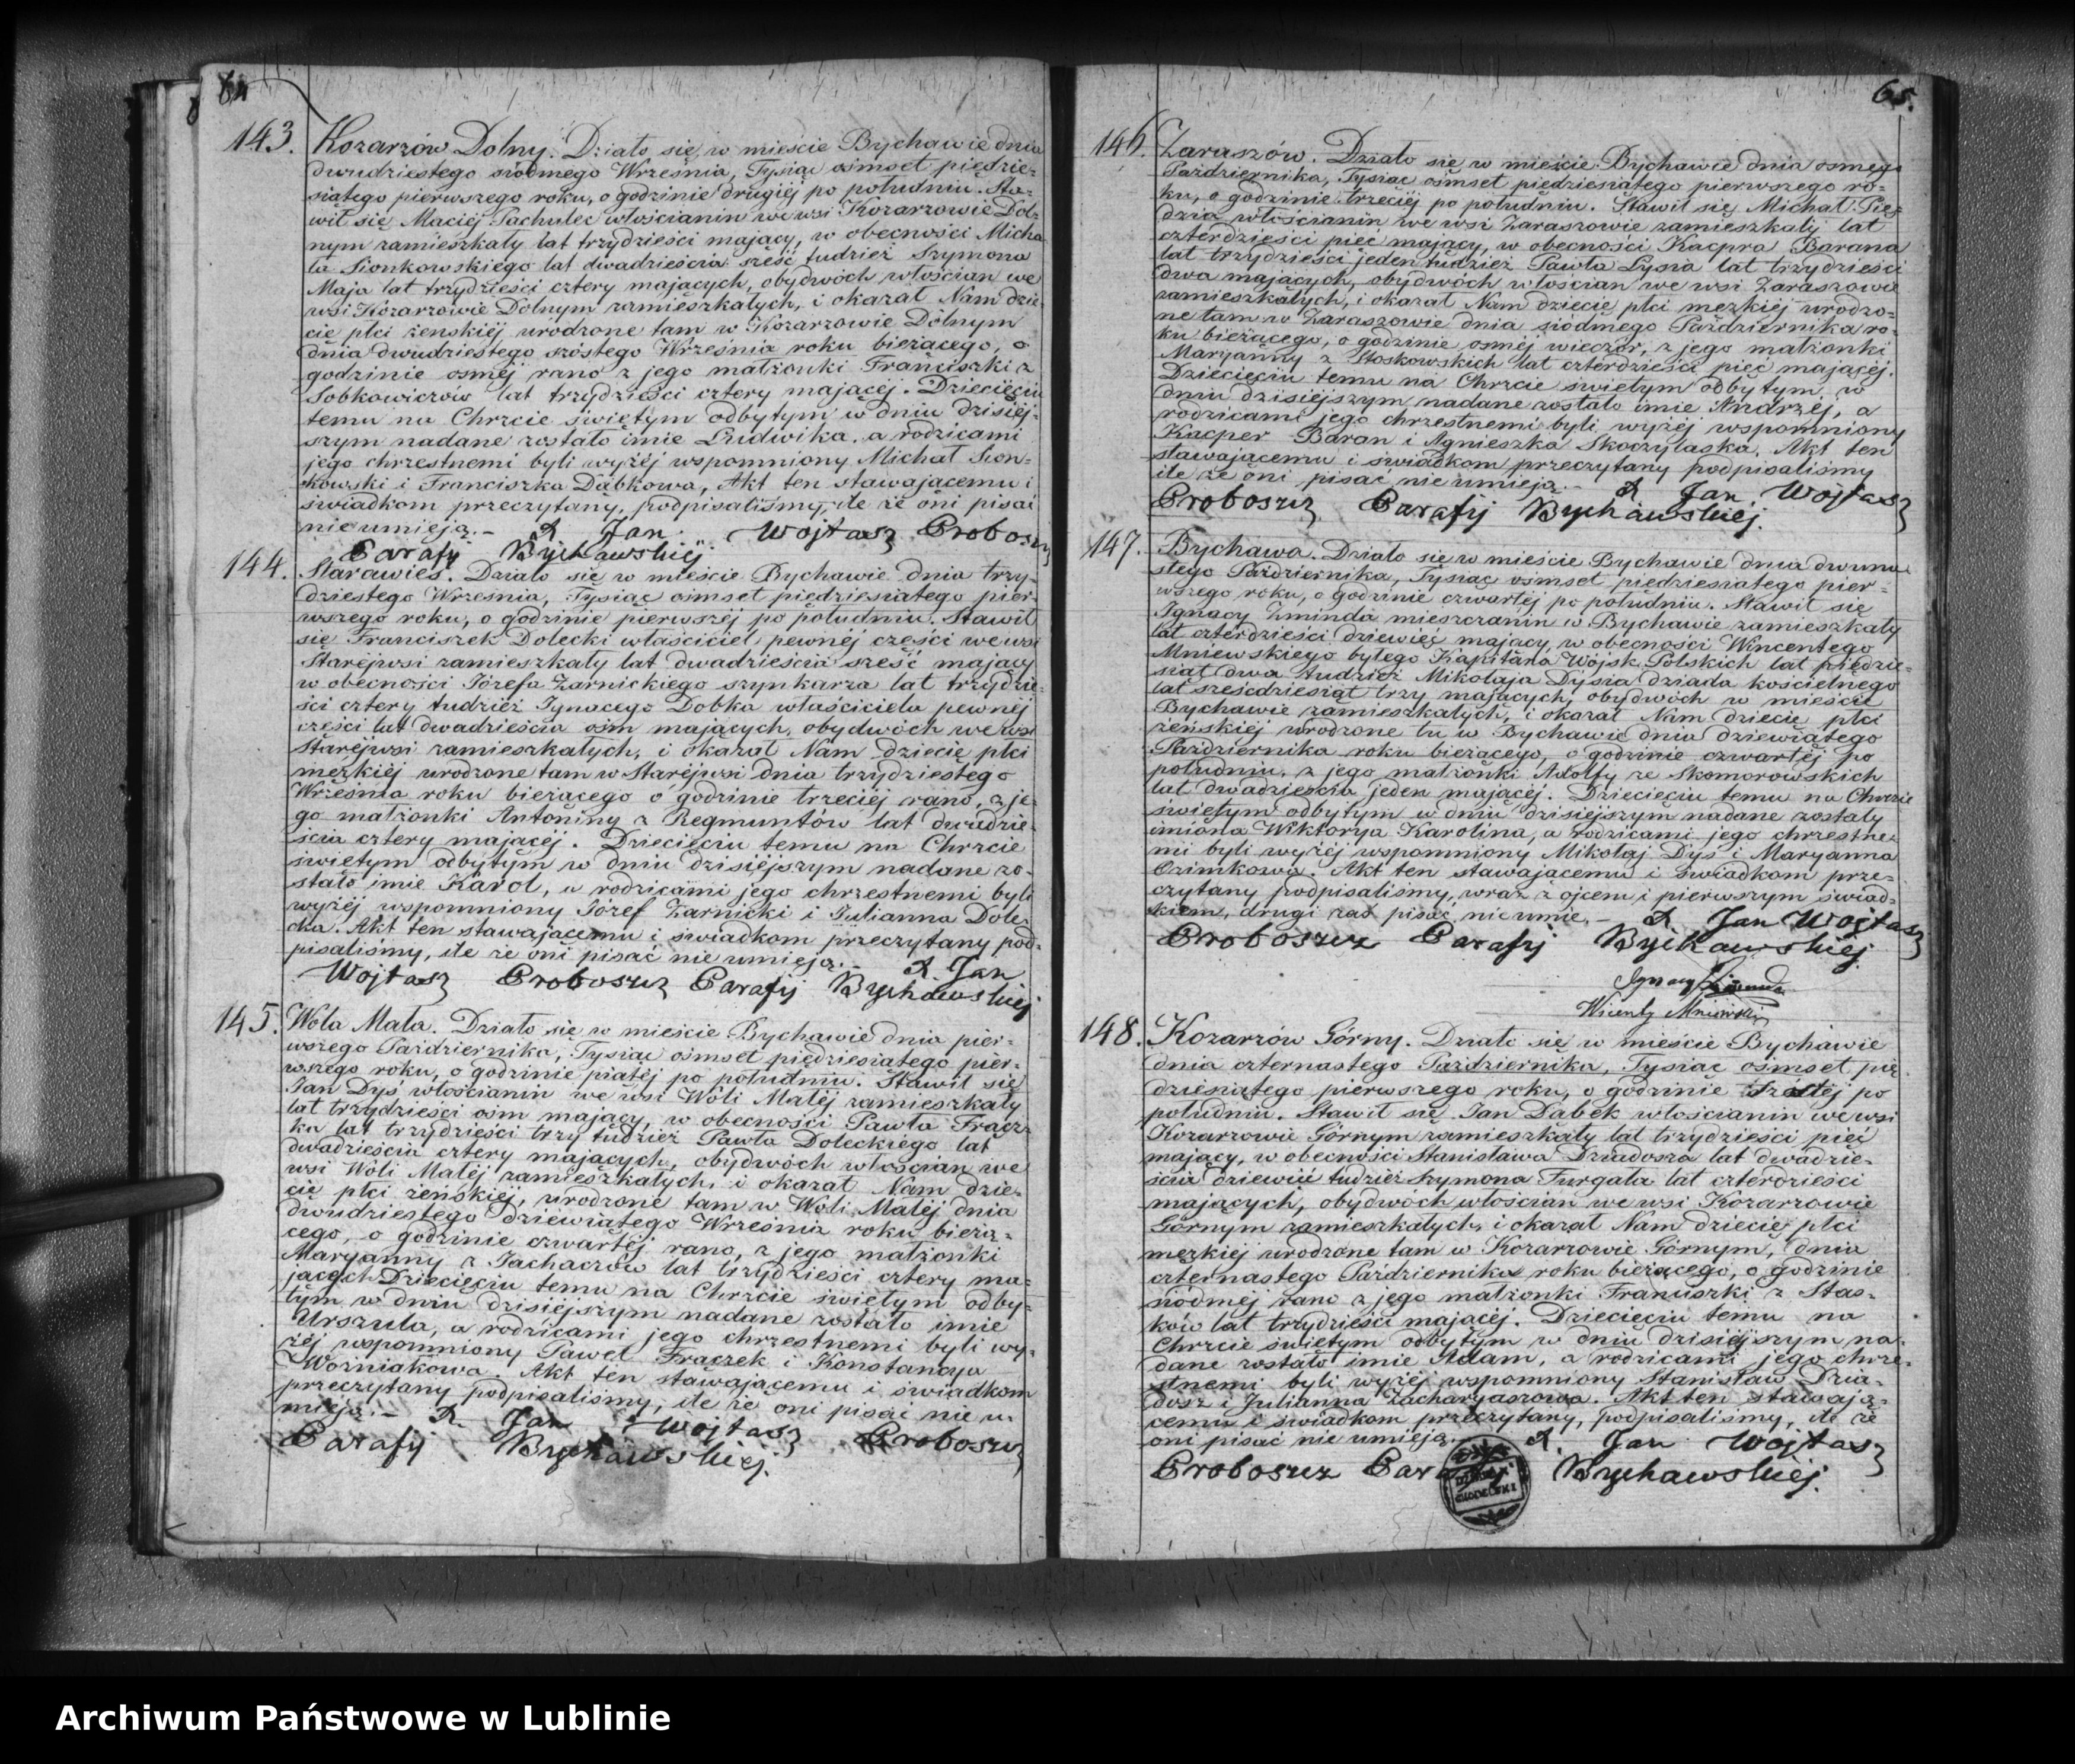 64
143. Kozarzów Dolny. Działo się w mieście Bychawie dnia
dwudziestego siódmego Września, Tysiąc ośmset pięćdzie-
siątego pierwszego roku, o godzinie drugiéj po południu. Sta-
wił się Maciéj Pachulec włościanin we wsi Kozarzowie Dol-
nym zamieszkały lat trzydzieści mający, w obecności Micha
ła Sionkowskiego lat dwadzieścia sześć tudzież Szymona
Maja lat trzydzieści cztery mających, obydwóch włościan we
wsi Kozarzowie Dolnym zamieszkałych, i okazał Nam dzie
cię płci żeńskiéj urodzone tam w Kozarzowie Dolnym
dnia dwudziestego szóstego Września roku bieżącego, o
godzinie ósméj rano z jego małżonki Franciszki z
Sobkowiczów lat trzydzieści cztery mającéj. Dziecięciu
temu na Chrzcie świętym odbytym w dniu dzisiéj-
szym nadane zostało imie Ludwika, a rodzicami
jego chrzestnemi byli wyżéj wspomniony Michał Sion-
kowski i Franciszka Dąbkowa, Akt ten stawającemu i
świadkom przeczytany, podpisaliśmy, ile że oni pisać
nie umieją.- X. Jan Wojtasz Probosz
Parafij Bychawskiéj.
144. Starawieś. Działo się w mieście Bychawie dnia trzy-
dziestego Września, Tysiąc ośmset pięćdziesiątego pier-
wszego roku, o godzinie pierwszéj po południu. Stawił
się Franciszek Dolecki właściciel pewnéj części we wsi
Staréjwsi zamieszkały lat dwadzieścia sześć mający
w obecności Józefa Żarnickiego szynkarza lat trzydzie-
ści cztery tudzież Ignacego Dobka właściciela pewnéj
części lat dwadzieścia ośm mających, obydwóch we wsi
Staréjwsi zamieszkałych, i okazał Nam dziecię płci
męzkiéj urodzone tam w Staréjwsi dnia trzydziestego
Września roku bieżącego o godzinie trzeciéj rano, z je-
go małżonki Antoniny z Regmuntów lat dwadzie-
ścia cztery mającéj. Dziecięciu temu na Chrzcie
świętym odbytym w dniu dzisiéjszym nadane zo-
stało imie Karol, a rodzicami jego chrzestnemi byli
wyżéj wspomniony Józef Żarnicki i Julianna Dole-
cka. Akt ten stawającemu i świadkom przeczytany pod-
pisaliśmy, ile że oni pisać nie umieją.- X. Jan
Wojtasz Proboszcz Parafij Bychawskiéj
145. Wola Mała. Działo się w mieście Bychawie dnia pier-
wszego Października, Tysiąc ośmset pięćdziesiątego pier-
wszego roku, o godzinie piątéj po południu. Stawił się
Jan Dyś włościanin we wsi Wóli Małéj zamieszkały
lat trzydzieści ośm mający, w obecności Pawła Frącz-
ka lat trzydzieści trzy tudzież Pawła Doleckiego lat
dwadzieścia cztery mających, obydwóch włościan we
wsi Wóli Małéj zamieszkałych, i okazał Nam dzie-
cię płci żeńskiéj, urodzone tam w Wóli Małéj dnia
dwudziestego dziewiątego Września roku bieżą-
cego, o godzinie czwartéj rano, z jego małżonki
Maryanny z Jachaczów lat trzydzieści cztery ma-
jącéj. Dziecięciu temu na Chrzcie świętym odby-
tym w dniu dzisiéjszym nadane zostało imie
Urszula, a rodzicami jego chrzestnemi byli wy-
żéj wspomniony Paweł Frączek i Konstancja
Woźniakowa. Akt ten stawającemu i świadkom
przeczytany podpisaliśmy, ile że oni pisać nie u-
mieją.- X. Jan Wojtasz Proboszcz
Parafij Bychawskiéj.
65.
146. Zaraszów. Działo się w mieście Bychawie dnia ósmego
Października, Tysiąc ośmset pięćdziesiątego pierwszego ro-
ku, o godzinie trzeciéj po południu. Stawił się Michał Pię-
dzia włościanin we wsi Zaraszowie zamieszkały lat
czterdzieści pięć mający, w obecności Kacpra Barana
lat trzydzieści jeden tudzież Pawła Łysia lat trzydzieści
dwa mających, obydwóch włościan we wsi Zaraszowie
zamieszkałych, i okazał Nam dziecię płci męzkiéj urodzo-
ne tam w Zaraszowie dnia siódmego Października ro-
ku bieżącego, o godzinie ósméj wieczór, z jego małżonki
Maryanny z Stoskowskich lat czterdzieści pięć mającéj.
Dziecięciu temu na Chrzcie świętym odbytym w
dniu dzisiejszym nadane zostało imie Andrzéj, a
rodzicami jego chrzestnemi byli wyżéj wspomniony
Kacper Baran i Agnieszka Skoczylaska. Akt ten
stawającemu i świadkom przeczytany podpisaliśmy
ile że oni pisać nie umieją.- X Jan Wojtasz
Proboszcz Parafij Bychawskiéj.
147. Bychawa. Działo się w mieście Bychawie dnia dwuna-
stego Października, Tysiąc ośmset pięćdziesiątego pier-
wszego roku, o godzinie czwartéj po południu. Stawił się
Ignacy Żminda mieszczanin w Bychawie zamieszkały
lat czterdzieści dziewięć mający, w obecności Wincentego
Mniewskiego byłego Kapitana Wojsk Polskich lat pięćdzie-
siąt dwa tudzież Mikołaja Dysia dziada kościelnego
lat sześćdziesiąt trzy mających, obydwóch w mieście
Bychawie zamieszkałych, i okazał Nam dziecię płci
żeńskiéj urodzone tu w Bychawie dnia dziewiątego
Października roku bieżącego, o godzinie czwartéj po
południu, z jego małżonki Adolfy ze Skomorowskich
lat dwadzieścia jeden mającéj. Dziecięciu temu na Chrzcie
świętym odbytym w dniu dzisiéjszym nadane zostały
imiona Wiktorya Karolina, a rodzicami jego chrzestne-
mi byli wyżéj wspomniony Mikołaj Dyś i Maryanna
Ozimkowa. Akt ten stawającemu i świadkom prze-
czytany podpisaliśmy, wraz z ojcem i pierwszym świad-
kiem, drugi zaś pisać nie umie.- X. Jan Wojtasz
Proboszcz Parafij Bychawskiéj
Ignacy Żminda
Wicenty Mniewski
148. Kozarzów Górny. Działo się w mieście Bychawie
dnia czternastego Października, Tysiąc ośmset pięć
dziesiątego pierwszego roku, o godzinie szóstéj po
południu. Stawił się Jan Dąbek włościanin we wsi
Kozarzowie Górnym zamieszkały lat trzydzieści pięć
mający, w obecności Stanisława Dziadosza lat dwadzie-
ścia dziewięć tudzież Szymona Furgała lat czterdzieści
mających, obydwóch włościan we wsi Kozarzowie
Górnym zamieszkałych, i okazał Nam dziecię płci
męzkiéj urodzone tam w Kozarzowie Górnym, dnia
czternastego Października roku bieżącego, o godzinie
siódméj rano z jego małżonki Franciszki z Stas-
ków lat trzydzieści mającéj. Dziecięciu temu na
Chrzcie świętym odbytym w dniu dzisiéjszym na-
dane zostało imie Adam, a rodzicami jego chrze-
stnemi byli wyżéj wspomniony Stanisław Dzia-
dosz i Julianna Zacharyaszowa. Akt ten stawają-
cemu i świadkom przeczytany, podpisaliśmy, ile że
oni pisać nie umieją.- X. Jan Wojtasz
Proboszcz Parafij Bychawskiéj.
Archiwum Państwowe w Lublinie